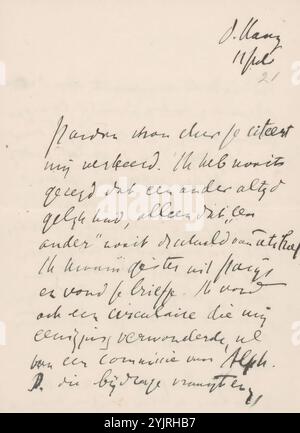 d. Haag
11 feb
21
Pardon mon cher je citeert
mij verkeerd. Ik heb nooits
gezegd dat een ander altyd
gelyk had, alleen dat "een
ander" nooit de schuld van iets had
Ik kwam gister uit Parijs
en vond je briefje. Ik vond
ook een circulaire die mij
eenigszins verwonderde, nl
van een commissie voor Alph.
D. die bijdrage vraagt en
alamy
Image ID: 2YJRHB7
www.alamy.com